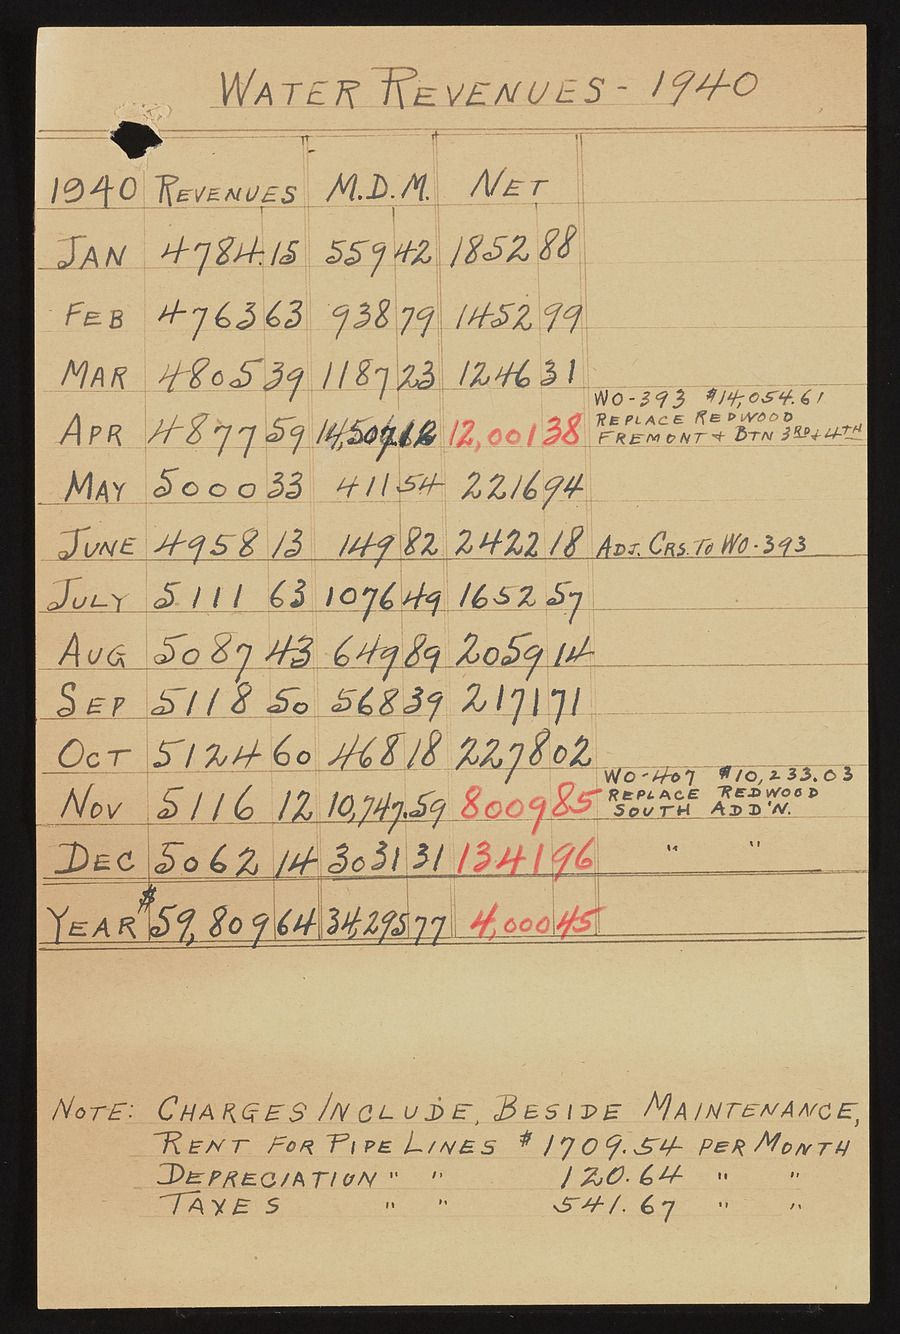 WATER REVENUES - 1940
1940 REVENUES M.D.M. NET
JAN 4784.15 559 42 1852 88
FEB 4763 63 938 79 1452 99
MAR 4805 39 1187 23 1246 31
WO-393 $14,054.61
REPLACE REDWOOD
APR 4877 59 14,507.12 12,001 38 FREMONT + BTN 3RD + 4TH
MAY 5000 33 411 54 2216 94
JUNE 4958 13 149 82 2422 18 ADJ. CRS. TO WO-393
JULY 5111 63 1076 49 1652 57
AUG 5087 43 649 89 2059 14
SEP 5118 50 568 39 2171 71
OCT 5124 60 468 18 2278 02
WO-407 $10,233.03
REPLACE REDWOOD
NOV 5116 12 10,747.59 8009 85 SOUTH ADD'N.
DEC 5062 14 3031 31 1341 96 " "
YEAR $59,809 64 34,295 77 4,000 45
NOTE: CHARGES INCLUDE, BESIDE MAINTENANCE,
RENT FOR PIPE LINES $1709.54 PER MONTH
DEPRECIATION " " 120.64 " "
TAXES " " 541.67 " "